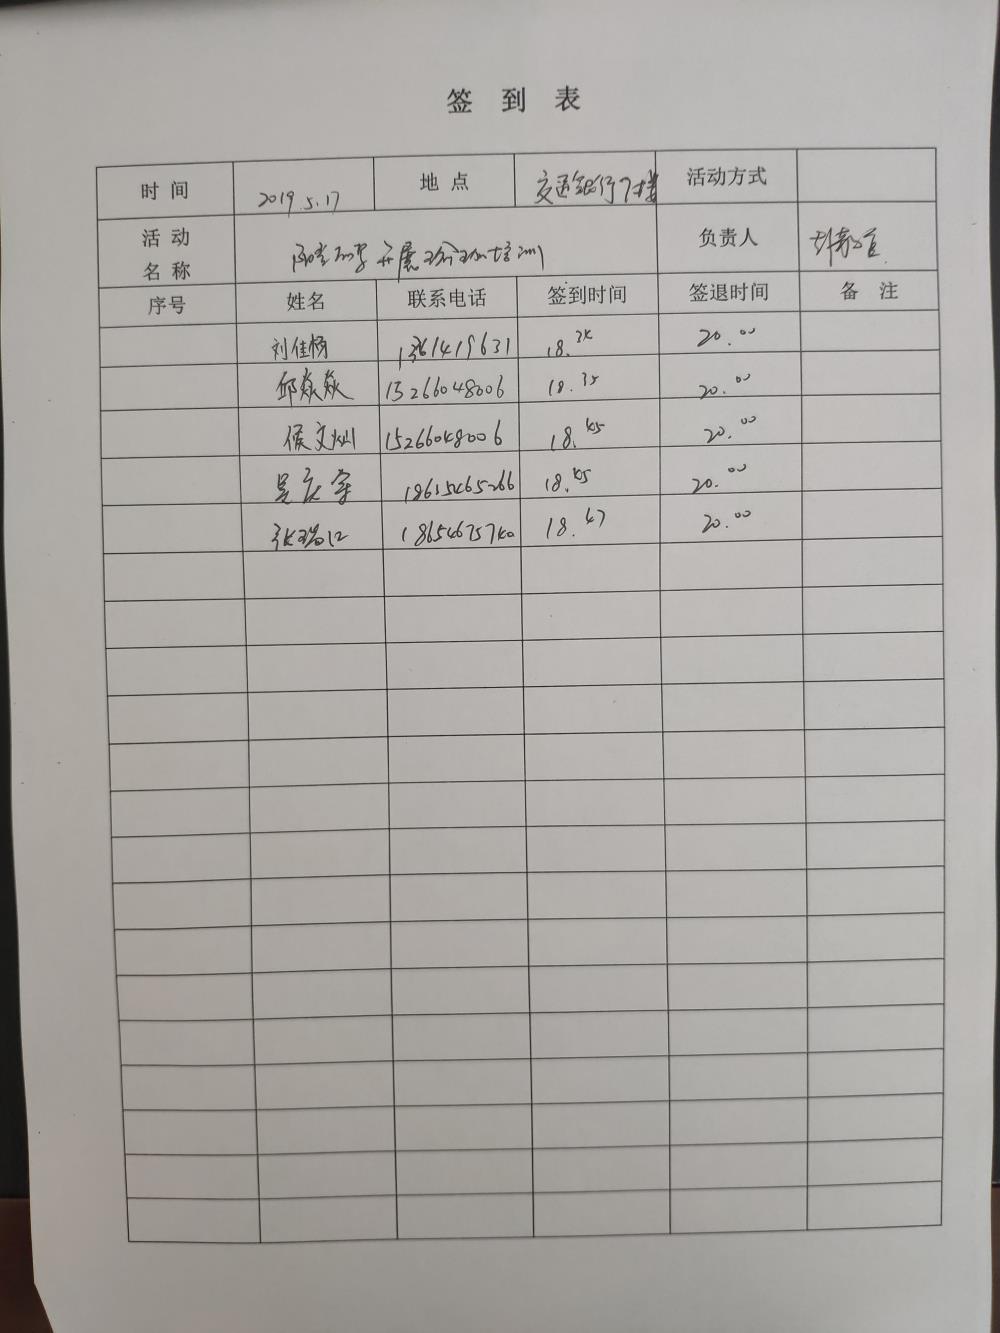 签 到 表
时 间 2019.5.17 地 点 交通银行7楼 活动方式
活 动 名 称 开展 培训 负责人
序号 姓名 联系电话 签到时间 签退时间 备 注
刘佳杨 18. 20.00
邱焱焱 15266048006 18.35 20.00
侯文灿 15266048006 18.45 20.00
吴庆 18615465266 18.45 20.00
张瑞 18.47 20.00